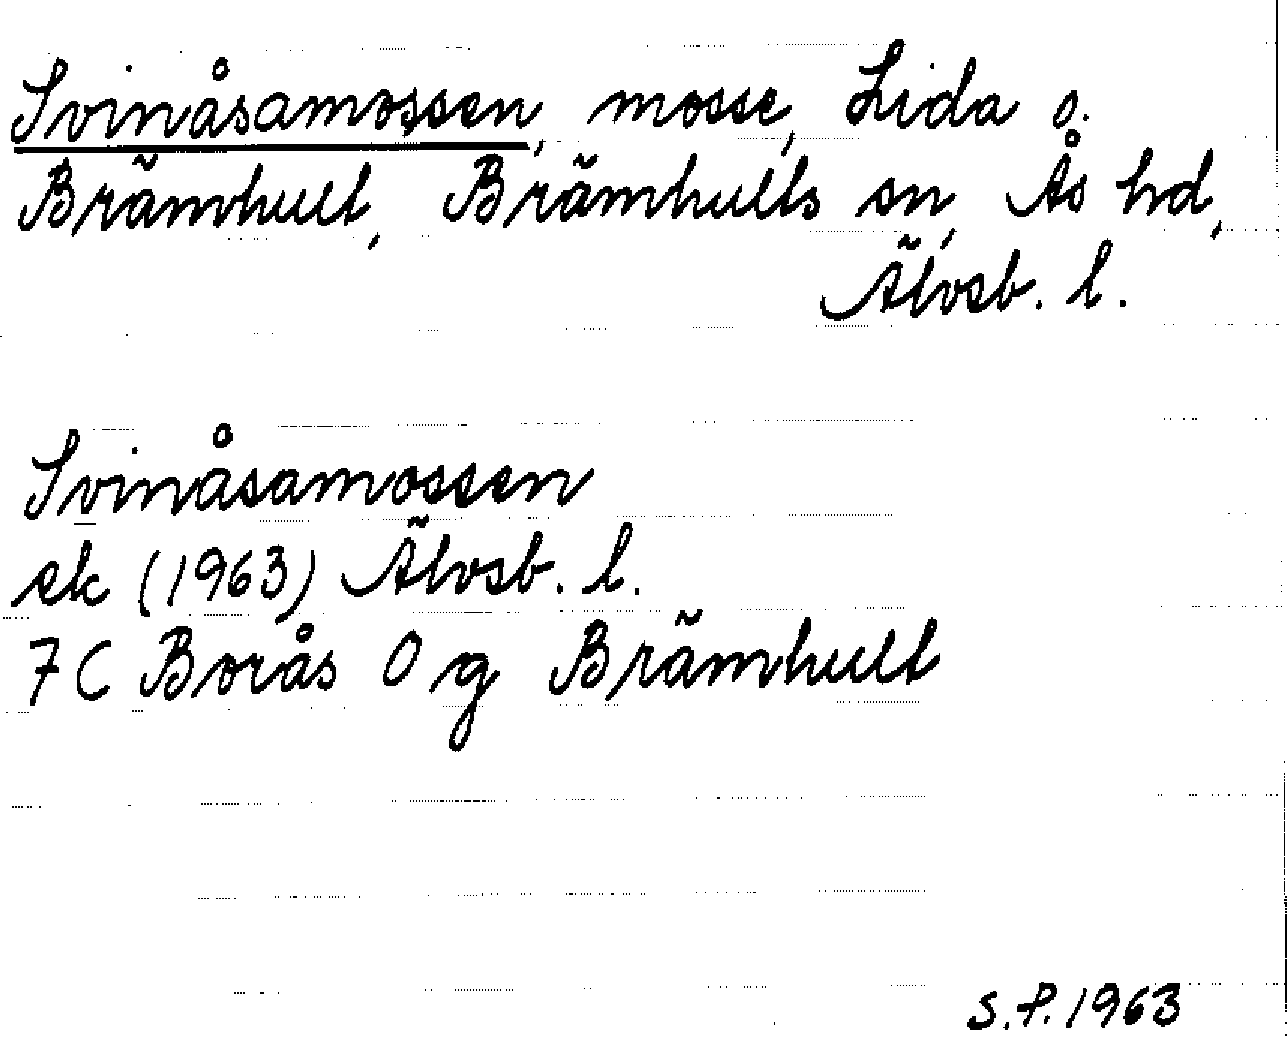 Svinåsamossen, mosse, Lida o.
Brämhult, Brämhults sn, Ås hd,
Älvsb. l.
Svinåsamossen
ek (1963) Älvsb. l.
7C Borås 0 g Brämhult
S.P. 1963